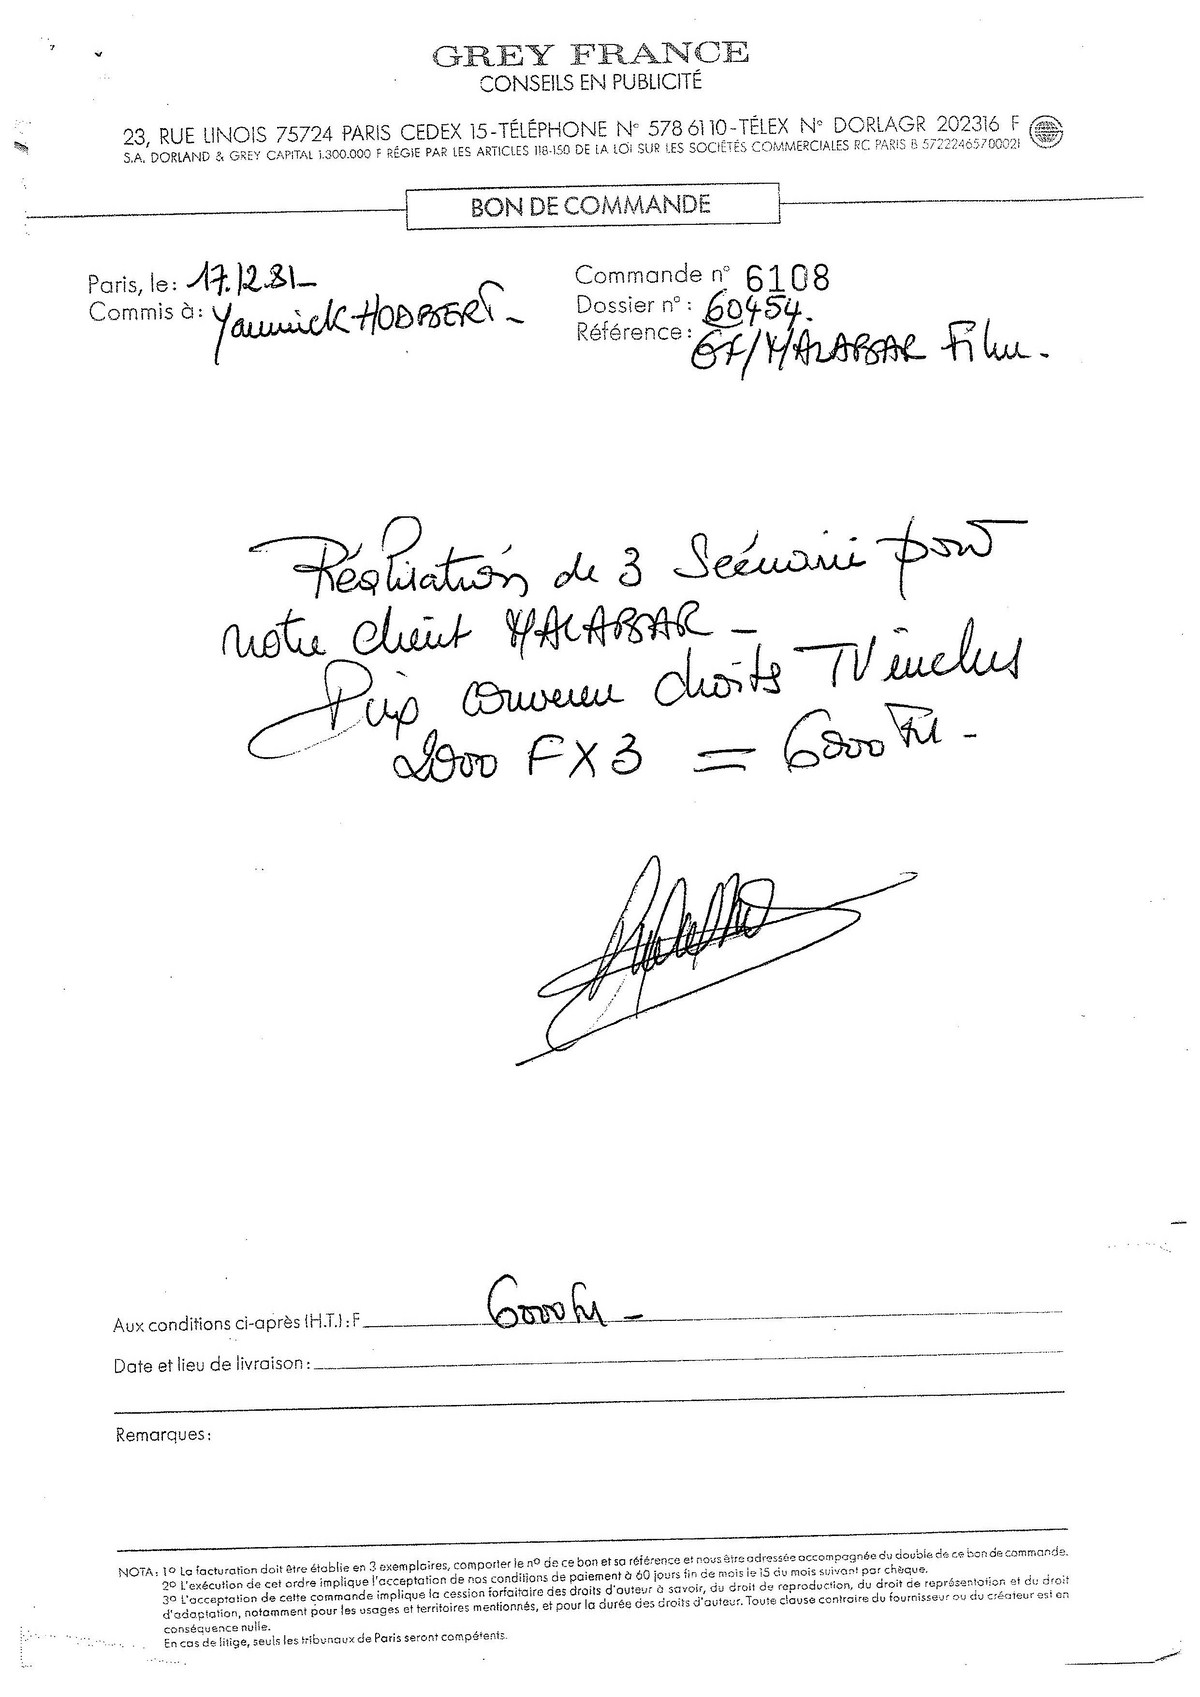 GREY FRANCE
CONSEILS EN PUBLICITÉ
23, RUE LINOIS 75724 PARIS CEDEX 15-TÉLÉPHONE N° 578 61 10-TÉLEX N° DORLAGR 202316 F
S.A. DORLAND & GREY CAPITAL 1.300.000 F RÉGIE PAR LES ARTICLES 118-150 DE LA LOI SUR LES SOCIÉTÉS COMMERCIALES RC PARIS B 57222465700021
BON DE COMMANDE
Paris, le: 17.12.81-
Commis à: Yannick HODBERT -
Commande n° 6108
Dossier n°: 60454.
Référence: GF/MALABAR Film.
Réalisation de 3 Scénarii pour
notre client MALABAR -
Prix convenu droits TV inclus
2000 F X 3 = 6000 Frs -
Aux conditions ci-après (H.T.): F 6000 Frs -
Date et lieu de livraison:
Remarques:
NOTA: 1° La facturation doit être établie en 3 exemplaires, comporter le n° de ce bon et sa référence et nous être adressée accompagnée du double de ce bon de commande.
2° L'exécution de cet ordre implique l'acceptation de nos conditions de paiement à 60 jours fin de mois le 15 du mois suivant par chèque.
3° L'acceptation de cette commande implique la cession forfaitaire des droits d'auteur à savoir, du droit de reproduction, du droit de représentation et du droit
d'adaptation, notamment pour les usages et territoires mentionnés, et pour la durée des droits d'auteur. Toute clause contraire du fournisseur ou du créateur est en
conséquence nulle.
En cas de litige, seuls les tribunaux de Paris seront compétents.